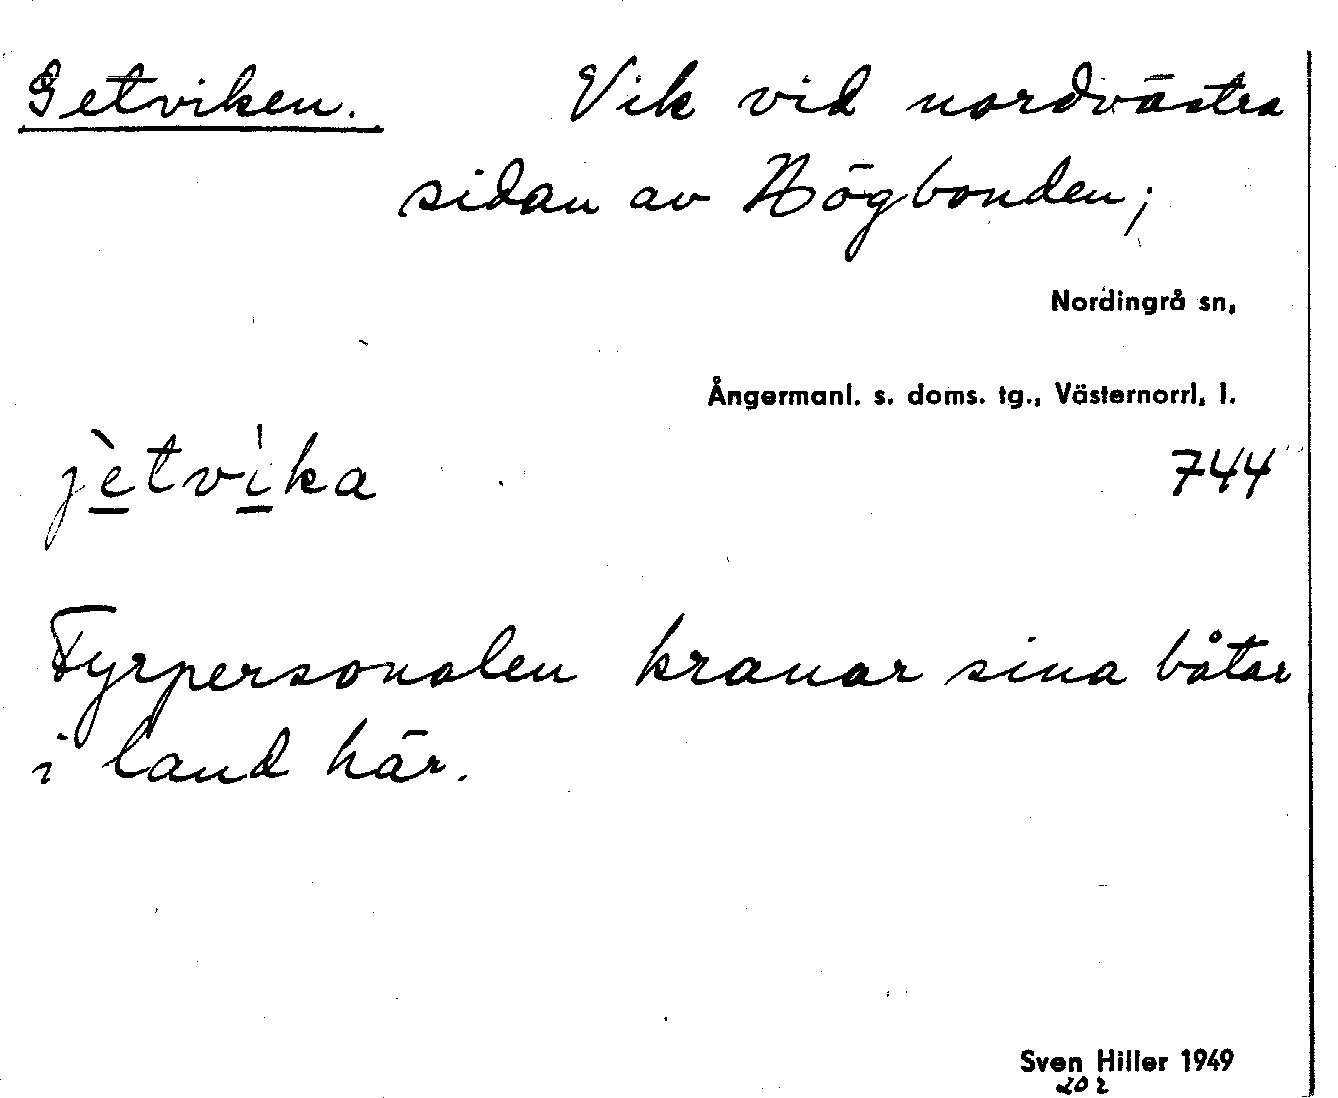 Getviken. Vik vid nordvästra
sidan av Högbonden;
Nordingrå sn,
Ångermanl. s. doms. tg., Västernorrl. l.
jètvi̍ka
744
Fyrpersonalen kranar sina båtar
i land här.
Sven Hiller 1949
202